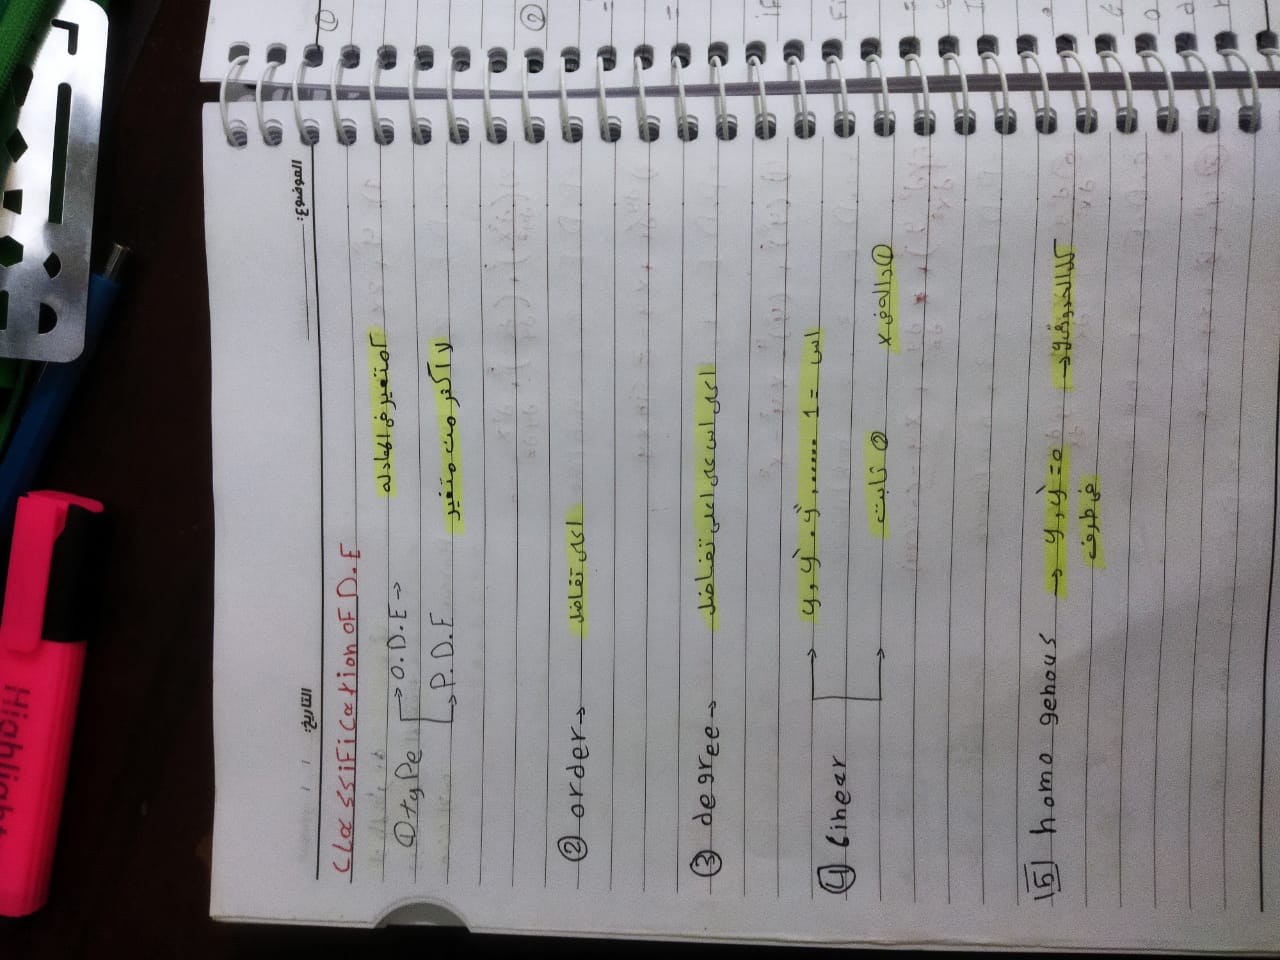 Highlight
الموضوع:
التاريخ: / /
Classification OF D.E
① type → O.D.E → متغير فى المعادله
→ P.D.E لا أكثر من متغير
② order → اعلى تفاضل
③ degree → اعلى اس على اعلى تفاضل
④ linear → y, y`, y``, ...... اس = 1
→ ① داله فى x ② ثابت
5 homo genous → y, y` = 0 كل الحدود فى y →
فى طرف